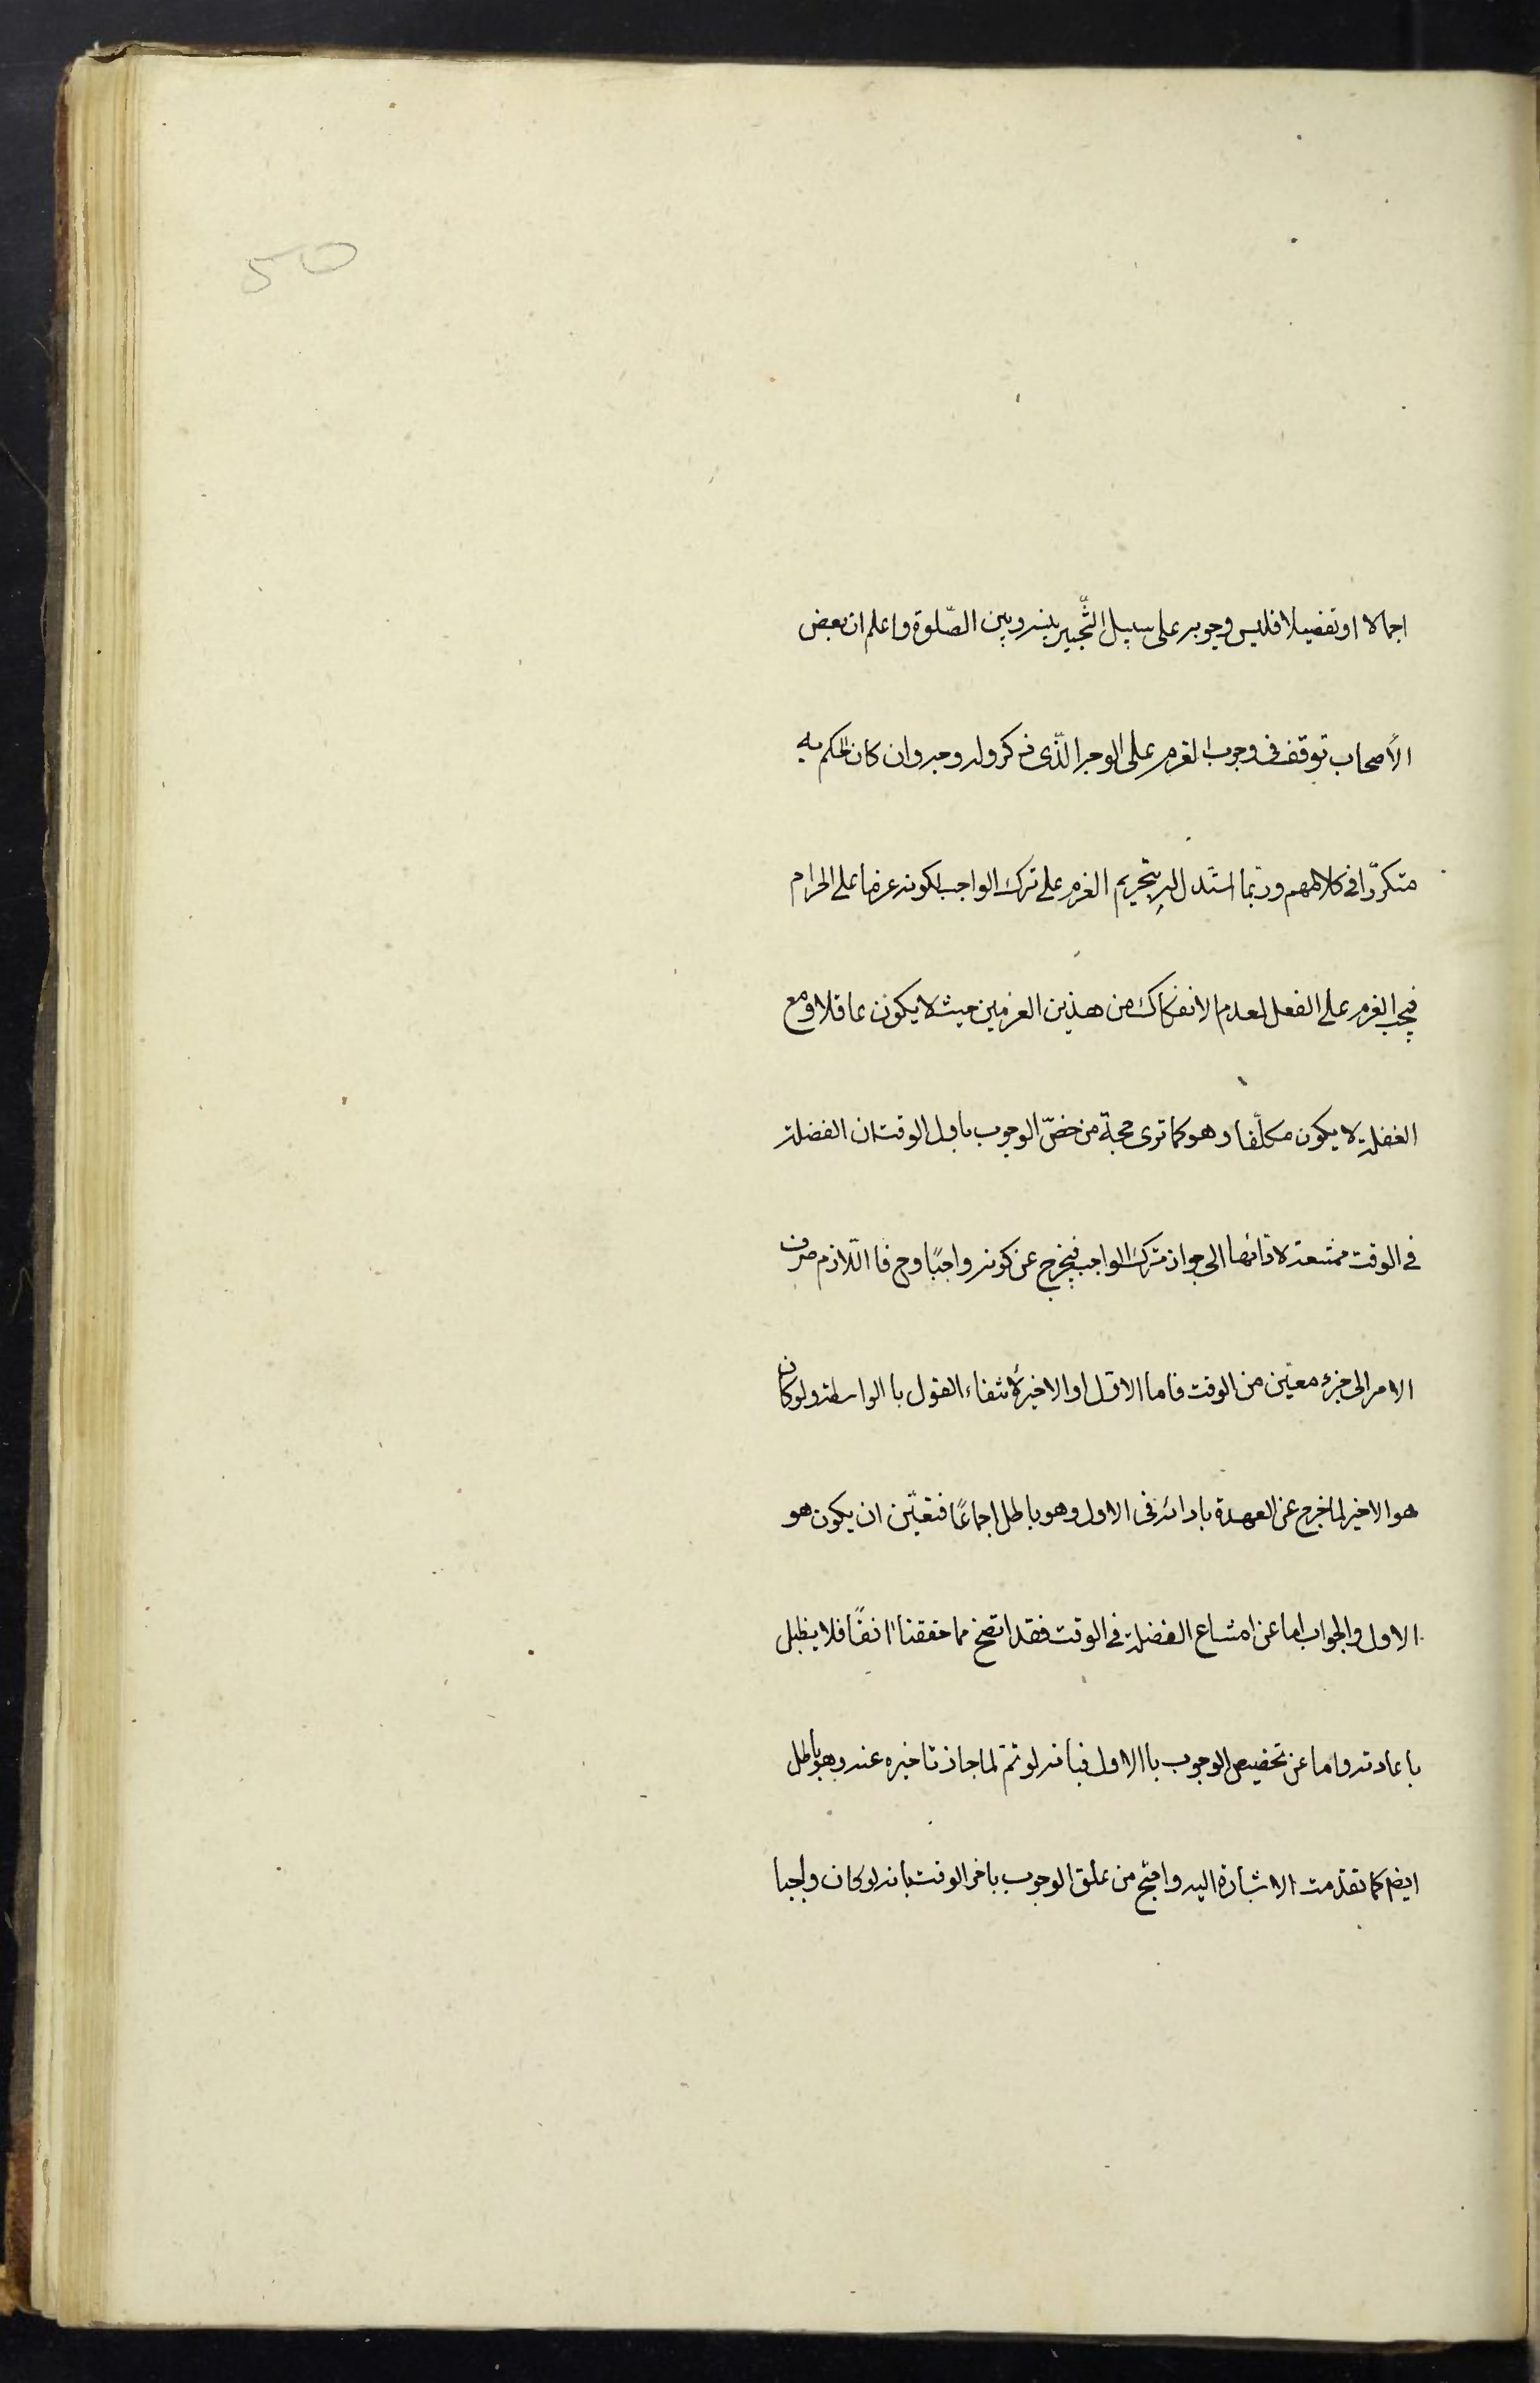 50
اجمالا او تفصيلا فليس وجوبه على سبيل التّخيير بينه وبين الصّلوة واعلم ان بعض
الأصحاب توقف فى وجوب العزم على الوجه الّذى ذكر وله وجه وان كان الحكم به
متكرّرا فى كلامهم وربّما استدل له بتحريم العزم على ترك الواجب لكونه عزما على الحرام
فيجب العزم على الفعل لعدم الانفكاك من هذين العزمين حيث لا يكون غافلا ومع
الغفلة لا يكون مكلّفا وهو كما ترى حجة من خصّ الوجوب باول الوقت ان الفضلة
فى الوقت ممتنعة لادائها الى جواز ترك الواجب فيخرج عن كونه واجبًا وح فا اللّازم صرف
الامر الى جزء معيّن من الوقت فاما الاوّل او الاخير لأنتفاء القول با الواسطة ولو كان
هو الاخير لما خرج عن العهدة بادائه فى الاول وهو باطل اجماعًا فتعيّن ان يكون هو
الاول والجواب اما عن امتناع الفضلة فى الوقت فقد اتضح مما حققنا انفًا فلا يطيل
باعادته واما عن تخصيص الوجوب با الاول فبانه لو تمّ لما جاز تاخيره عنه وهو باطل
ايضم كما تقدّمت الاشارة اليه واحتج من علق الوجوب باخر الوقت بانه لو كان واجبا